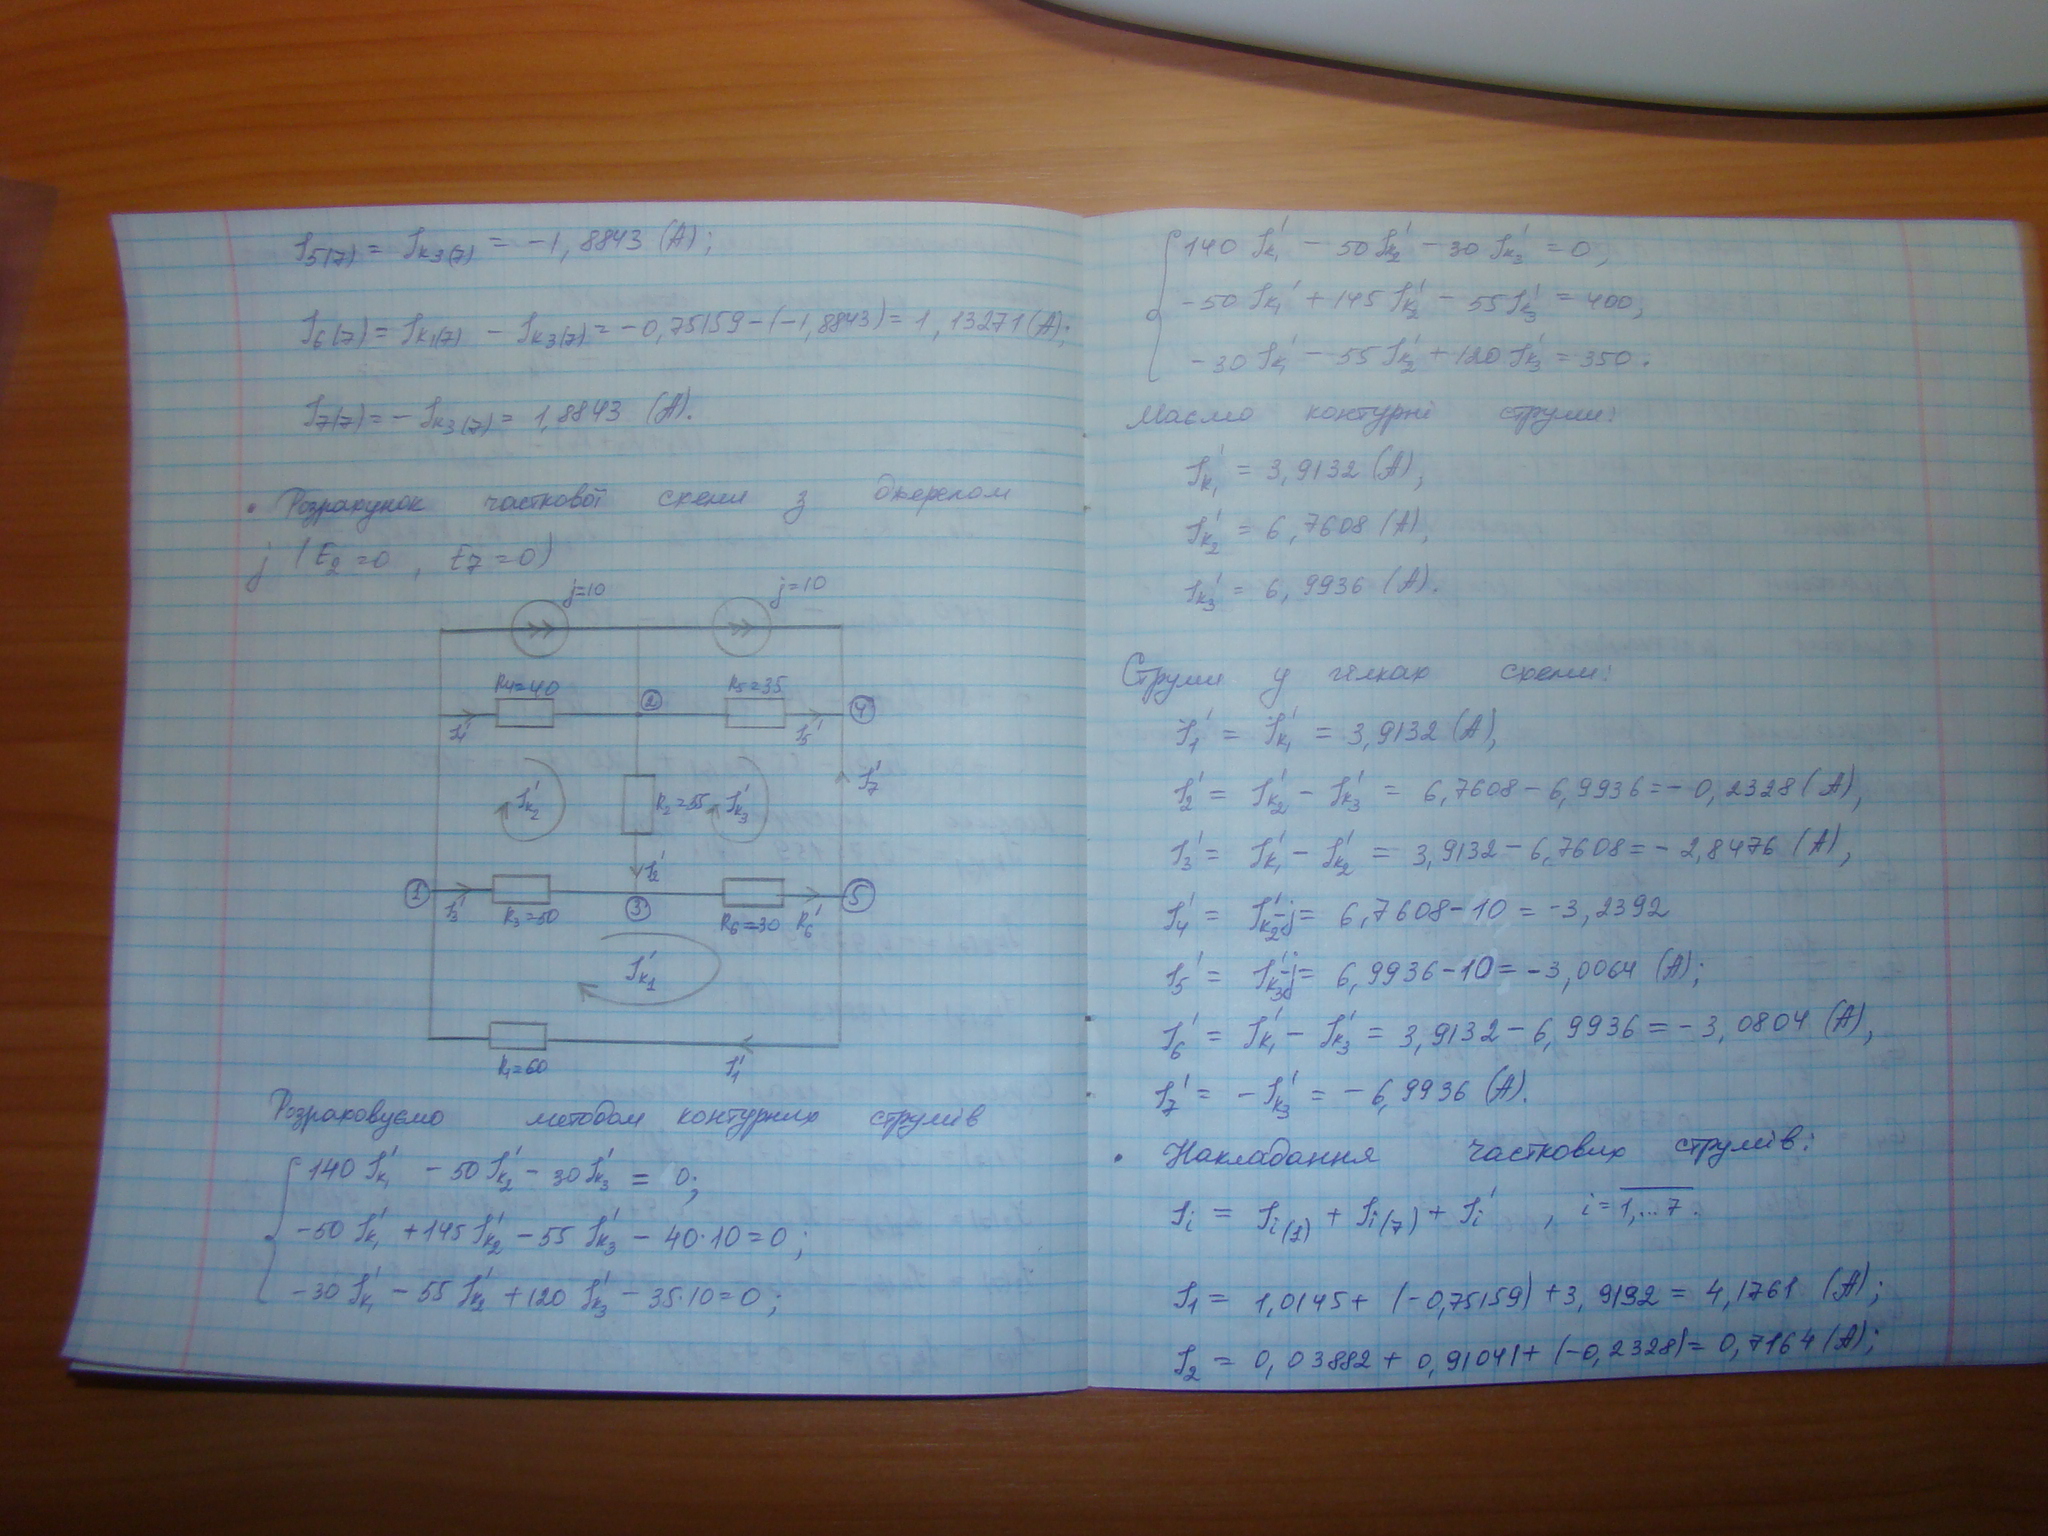 I₅₍₇₎ = Iк₃₍₇₎ = -1,8843 (А);
I₆₍₇₎ = Iк₁₍₇₎ - Iк₃₍₇₎ = -0,75159-(-1,8843)=1,13271(А);
I₇₍₇₎ = - Iк₃₍₇₎ = 1,8843 (А).
• Розрахунок часткової схеми з джерелом
j (E₂=0 , E₇=0)
j=10 j=10
R₄=40 ② R₅=35 ④
I₄' I₅'
Iк₂' R₂=55 Iк₃' I₇'
I₂'
① I₃' R₃=50 ③ R₆=30 R₆' ⑤
Iк₁'
R₁=60 I₁'
Розраховуємо методом контурних струмів
140 Iк₁' - 50Iк₂' - 30Iк₃' = 0;
-50 Iк₁' +145 Iк₂' - 55 Iк₃' - 40·10=0;
-30 Iк₁' - 55 Iк₂' +120 Iк₃' - 35·10=0;
140 Iк₁' - 50Iк₂' - 30 Iк₃' = 0,
-50 Iк₁' + 145 Iк₂' - 55Iк₃' = 400,
-30 Iк₁' - 55 Iк₂' + 120 Iк₃' = 350.
Маємо контурні струми:
Iк₁' = 3,9132 (А),
Iк₂' = 6,7608 (А),
Iк₃' = 6,9936 (А).
Струми у гілках схеми:
I₁' = Iк₁' = 3,9132 (А),
I₂' = Iк₂' - Iк₃' = 6,7608-6,9936=-0,2328(А),
I₃' = Iк₁' - Iк₂' = 3,9132-6,7608=-2,8476 (А),
I₄' = Iк₂'-j= 6,7608-10 = -3,2392
I₅' = Iк₃'-j= 6,9936-10=-3,0064 (А);
I₆' = Iк₁' - Iк₃' = 3,9132-6,9936=-3,0804 (А),
I₇' = - Iк₃' = -6,9936 (А).
• Накладання часткових струмів:
Iᵢ = Iᵢ₍₂₎ + Iᵢ₍₇₎ + Iᵢ' , i=1,...7.
I₁ = 1,0145+ (-0,75159)+3,9132 = 4,1761 (А);
I₂ = 0,03882 + 0,91041+ (-0,2328)= 0,7164(А);